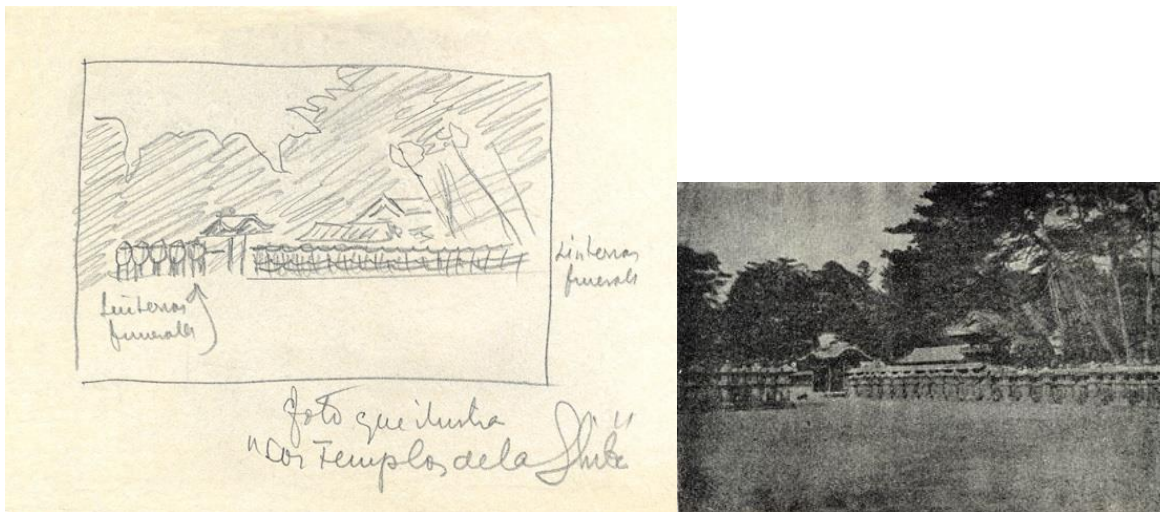 Linternas
funerales
Linternas
funerales
foto que ilustra
"Los Templos de la Shiba"